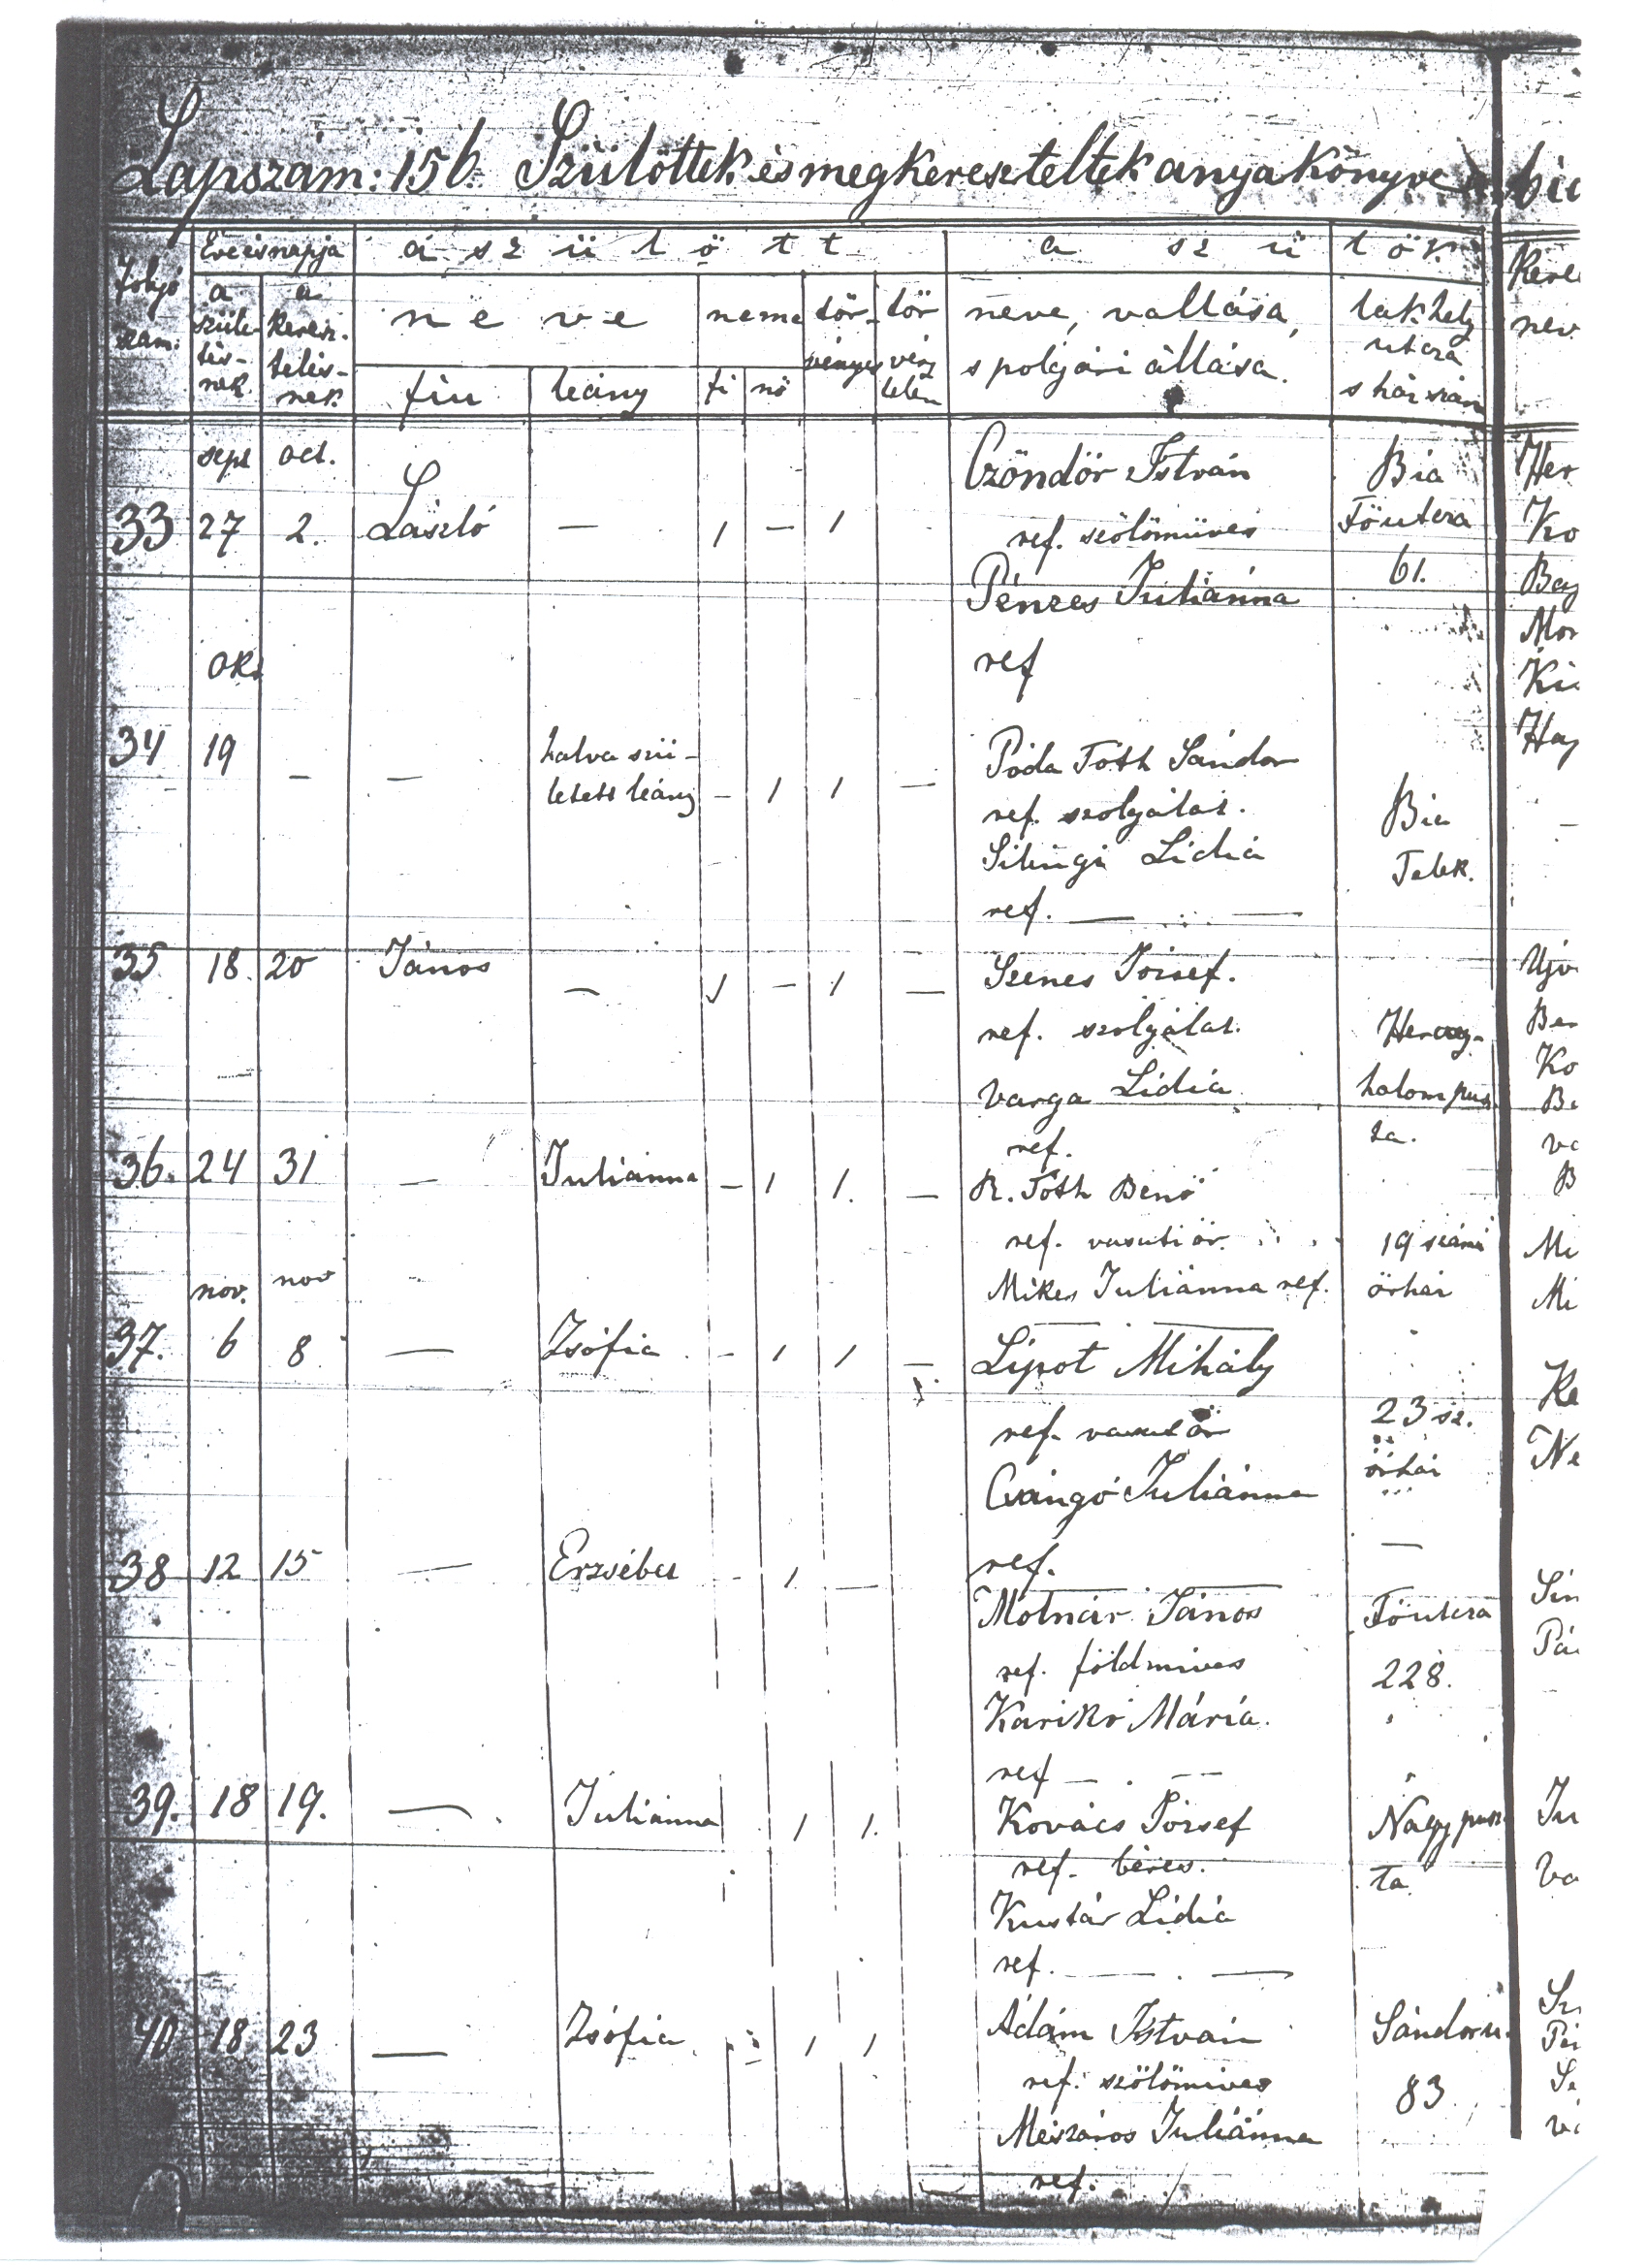 Lapszám: 156. Szülöttek és megkereszteltek anyakönyve
folyó szám.
Éve és napja
a szüle-tés-nek.
a keresz-telés-nek.
a szülött
neve
fiu
leány
neme
fi
nö
tör-vényes
tör vény telen
a szülök
neve, vallása,
s polgári állása.
lakhely
utcza
s ház szám
Kere
nev.
33
sept 27
oct. 2.
László
—
1 — 1
Czöndör István
ref. szölömüves
Pénzes Juliánna
ref
Bia
Föutcza
61.
Her
Ko
Bag
Mor
Ki
Hay
34
okt 19
—
—
halva szü-
letett leány
— 1 1 —
Póda Tóth Sándor
ref. szolgálat.
Silingi Lidia
ref. —
Bia
Telek.
—
35
18. 20
János
—
1 — 1 —
Szenes József.
ref. szolgálat.
Varga Lidia
ref.
Herczeg-
halom pusz
ta.
Ujv
Ber
Ko
36. 24 31
—
Juliánna
— 1 1. —
R. Tóth Benö
ref. vasuti ör.
Mikes Juliánna ref.
19 számú
örház
Mi
Mi
37.
nov. 6
nov 8
—
Zsófia
— 1 1 —
Lipot Mihály
ref. vasut ör
Csángó Juliánna
ref.
23 sz.
örház
Ke
Ne
38 12 15
—
Erzsébet
- 1 —
Molnár János
ref. földmives
Karikó Mária.
ref —
Föutcza
228.
Sin
39. 18 19.
—
Juliánna
1 1.
Kovács József
ref. béres.
Kustár Lidia
ref. —
Nagy pusz
ta.
Ju
Va
40 18 23
—
Zsófia
1 1
Ádám István
ref. szölömives
Mészáros Juliánna
ref.
Sándor u.
83